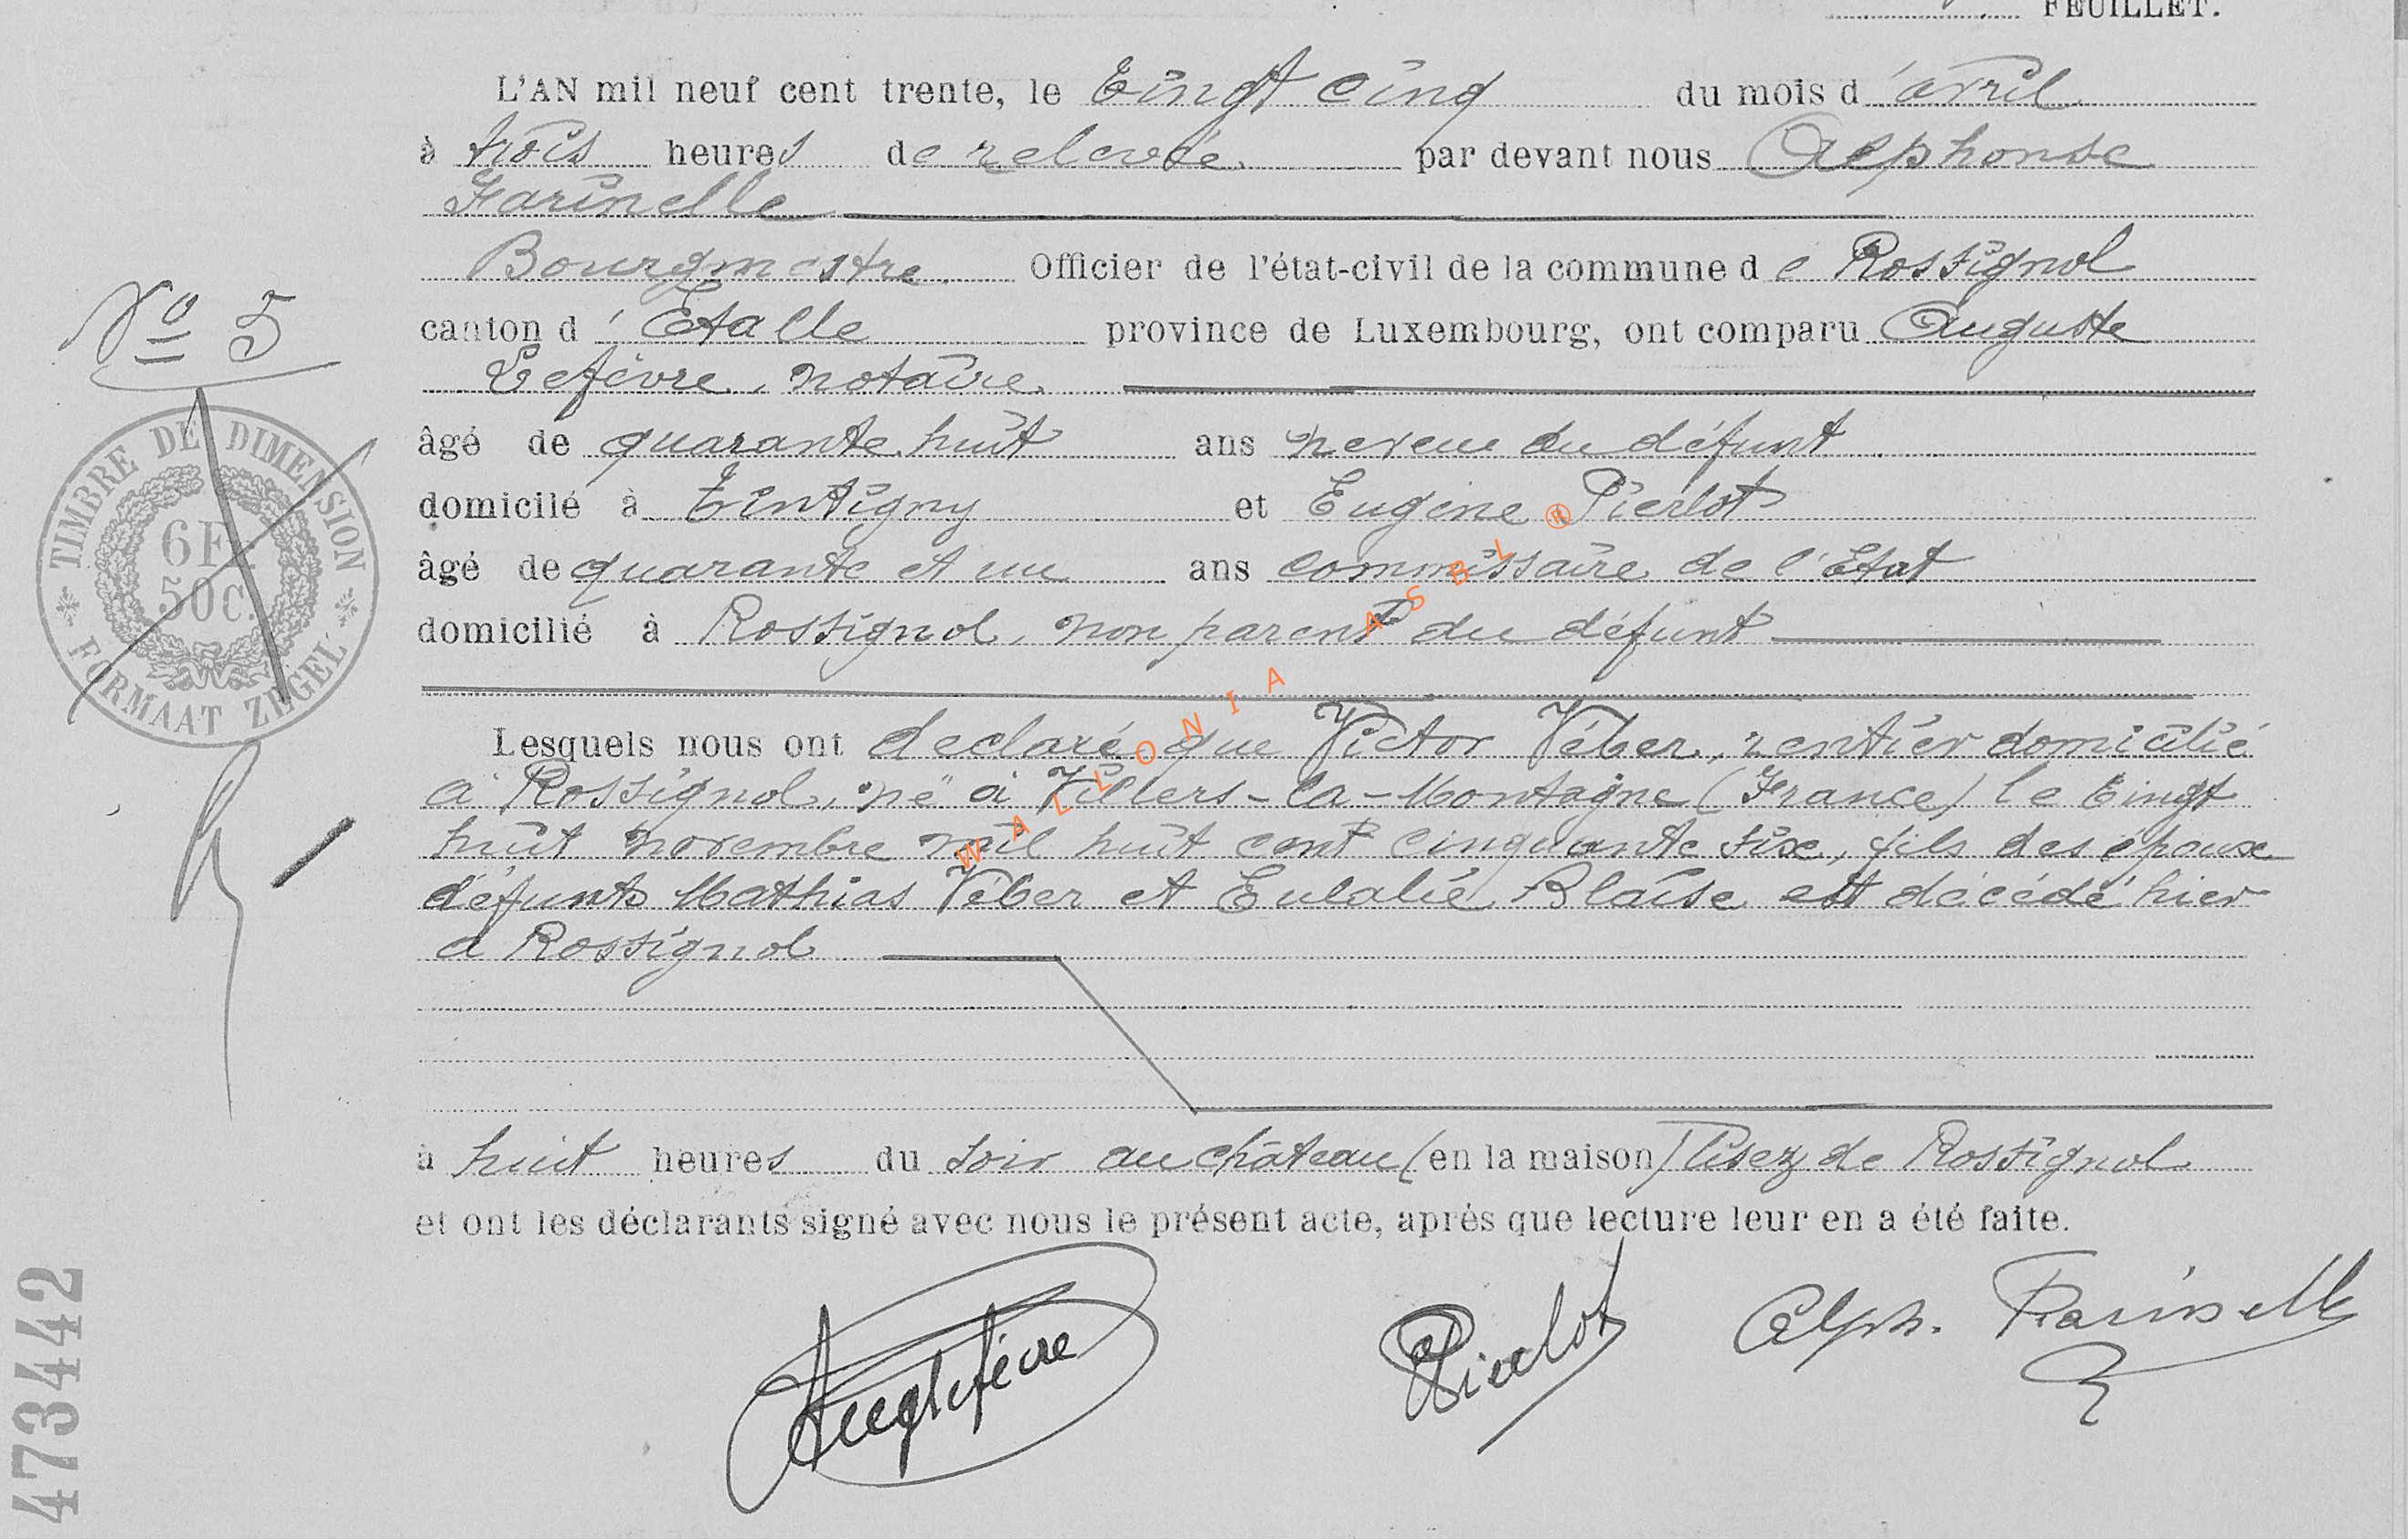 FEUILLET.
L'AN mil neuf cent trente, le vingt cinq du mois d'avril
à trois heures de relevée par devant nous Alphonse
Farinelle
Bourgmestre Officier de l'état-civil de la commune de Rossignol
N° 5
canton d'Etalle province de Luxembourg, ont comparu Auguste
Lefèvre, notaire
âgé de quarante huit ans neveu du défunt
domicilé à Tintigny et Eugène Pierlot
âgé de quarante et un ans commissaire de l'Etat
domicilié à Rossignol, non parent du défunt
TIMBRE DE DIMENSION
6Fr
50C.
FORMAAT ZEGEL
Lesquels nous ont declaré que Victor Véber, rentier domicilié
à Rossignol, né à Villers-la-Montagne (France) le vingt
huit novembre mil huit cent cinquante six, fils des époux
défunts Mathias Véber et Eulalie Blaise est décédé hier
à Rossignol
à huit heures du soir au château (en la maison) lisez de Rossignol
et ont les déclarants signé avec nous le présent acte, après que lecture leur en a été faite.
Aug Lefèvre Pierlot Alph. Farinelle
473442
WALLONIA ASBL ®